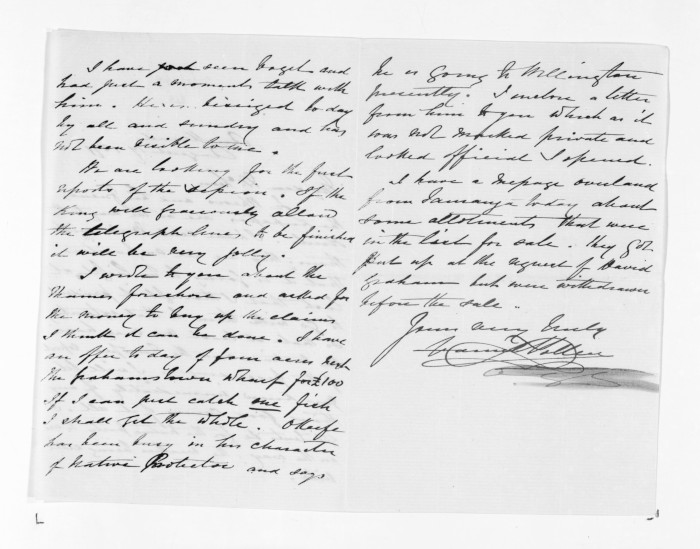 I have just seen Vogel and
had just a moments talk with
him. He is besieged to day
by all and sundry and has
not been visible to me.
We are looking for the first
reports of the Session. If the
King will graciously allow
the telegraph lines to be finished
it will be very jolly.
I wrote to you about the
Thames foreshore and asked for
the money to buy up the claims
I think it can be done. I have
an offer to day of four acres next
the Grahamstown Wharf for £100
If I can just catch one fish
I shall get the whole. OKeefe
has been busy in his character
of Native Protector and says
he is going to Wellington
presently. I enclose a letter
from him to you which as it
was not marked private and
looked official I opened.
I have a message overland
from Tauranga today about
some allotments that were
in the list for sale. They got
put up at the request of David
Graham but were withdrawn
before the sale.
Yours very truly